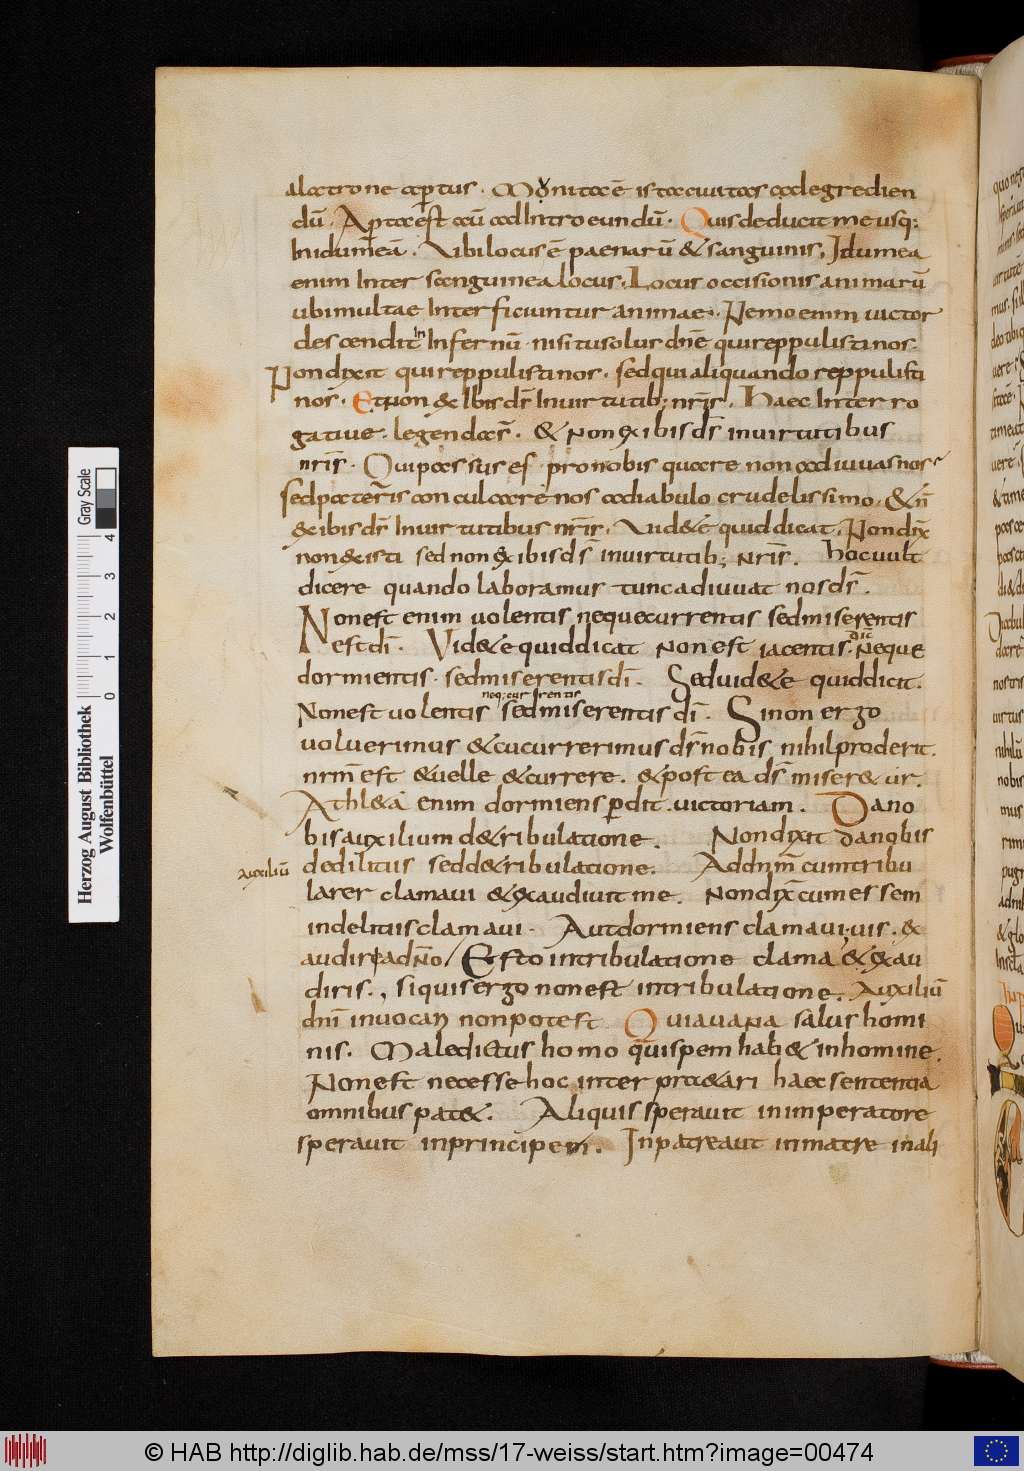 alatrone captus. Monita ē ista ciuitas ad egredien
dū. Apta est aū ad Introeundū. Quis deducit me usq;
In idumeā. Ubi locus ē paenarū & sanguinis, Idumea
enim Inter sanguinea locus. Locus occisionis animarū
ubi multae Interficiuntur animae. Nemo enim uictor
descendit in Infernū nisi tu solus dn̄e qui reppulisti nos.
Non dixit qui reppulisti nos. sed qui aliquando reppulisti
nos. Et non & Ibis ds̄ In uirtutib; nr̄is. Haec Inter ro
gatiue. legenda est. & non exibis ds̄ in uirtutibus
nr̄is. Qui passus es pro nobis quare non adiuuas nos
sed pateris conculcare nos a diabulo crudelissimo. & n̄
exibis ds̄ In uirtutibus nr̄is. Uid&e quid dicat. Non dix̄
non existi sed non exibis ds̄ in uirtutib; nr̄is. hoc uult
dicere quando laboramus tunc adiuuat nos ds̄.
Non est enim uolentis neque currentis sed miserentis
est dī. Vid&e quid dicat non est iacentis. dic̄ neque
dormientis. sed miserentis dī. Sed uid&e quid dicit.
Non est uolentis neq; currentis sed miserentis dī. Si non ergo
uoluerimus & cucurrerimus ds̄ nobis nihil proderit.
nr̄m est & uelle & currere. & post ea ds̄ miser& ur.
Athl&a enim dormiens perdit uictoriam. Da no
bis auxilium de tribulatione. Non dixit da nobis
auxiliū
dedilitiis sed de tribulatione. Ad dn̄m cum tribu
larer clamaui & exaudiuit me. Non dix̄ cum essem
in delitiis clamaui. Aut dormiens clamaui. uis. &
audiri a dn̄o/ Esto in tribulatione clama, & exau
diris., si quis ergo non est in tribulatione. Auxiliū
dn̄i inuocan non potest Quia uana salus homi
nis. Maledictus homo qui spem hab& in homine.
Non est necesse hoc inter praetari haec sententia
omnibus pat&. Aliquis sperauit in imperatore
sperauit in principem. In patre aut in matre in ali
Herzog August Bibliothek
Wolfenbüttel
0 1 2 3 4
Gray Scale
© HAB http://diglib.hab.de/mss/17-weiss/start.htm?image=00474